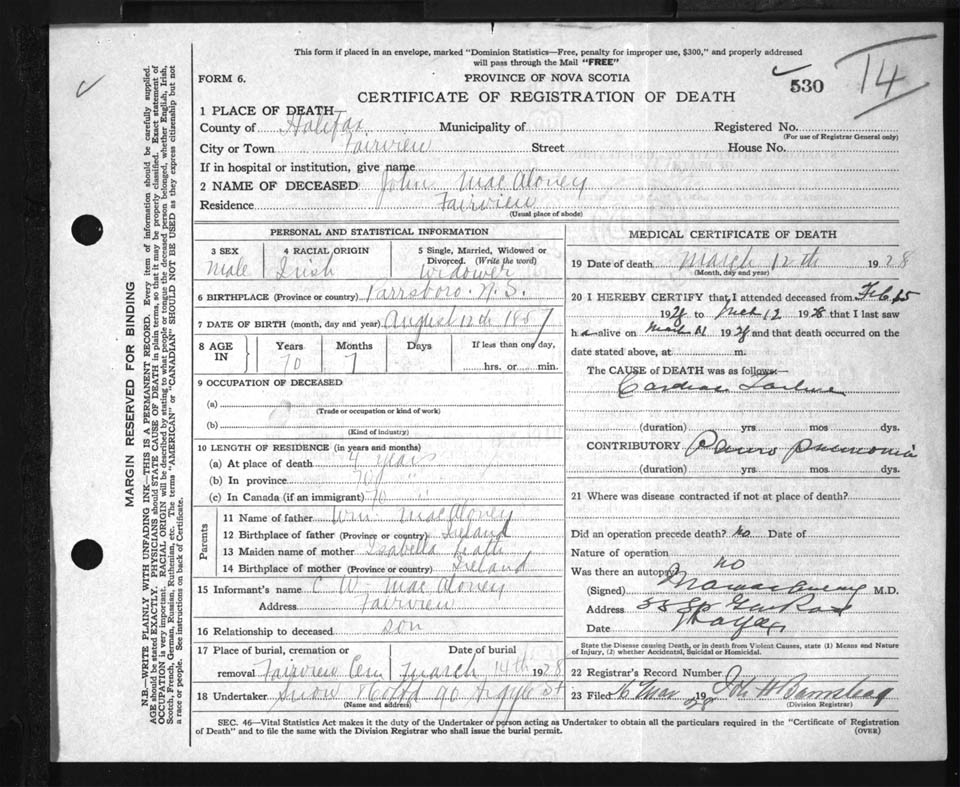 This form if placed in an envelope, marked "Dominion Statistics—Free, penalty for improper use, $300," and properly addressed
will pass through the Mail "FREE"
FORM 6.
PROVINCE OF NOVA SCOTIA
530
T4
CERTIFICATE OF REGISTRATION OF DEATH
1 PLACE OF DEATH
County of Halifax Municipality of Registered No.
(For use of Registrar General only)
City or Town Fairview Street House No.
If in hospital or institution, give name
2 NAME OF DECEASED John MacAloney
Residence Fairview
(Usual place of abode)
PERSONAL AND STATISTICAL INFORMATION
3 SEX 4 RACIAL ORIGIN 5 Single, Married, Widowed or
Divorced. (Write the word)
Male Irish Widower
6 BIRTHPLACE (Province or country) Parrsboro. N.S.
7 DATE OF BIRTH (month, day and year) August 12th 1857
8 AGE IN Years Months Days If less than one day,
70 7 hrs. or min.
9 OCCUPATION OF DECEASED
(a)
(Trade or occupation or kind of work)
(b)
(Kind of industry)
10 LENGTH OF RESIDENCE (in years and months)
(a) At place of death 4 years
(b) In province 70 "
(c) In Canada (if an immigrant) 70 "
Parents
11 Name of father Wm. MacAloney
12 Birthplace of father (Province or country) Ireland
13 Maiden name of mother Isabella
14 Birthplace of mother (Province or country) Ireland
15 Informant's name C W MacAloney
Address Fairview
16 Relationship to deceased son
17 Place of burial, cremation or Date of burial
removal Fairview Cem March 14th 1928
18 Undertaker Snow & Co Ltd 90 Argyle St
(Name and address)
MEDICAL CERTIFICATE OF DEATH
19 Date of death March 12th 1928
(Month, day and year)
20 I HEREBY CERTIFY that I attended deceased from Feb. 25
1928 to Mch 12 1928 that I last saw
h alive on Mch 11 1928 and that death occurred on the
date stated above, at m.
The CAUSE of DEATH was as follows:—
Cardiac Failure
(duration) yrs. mos. dys.
CONTRIBUTORY pneumonia
(duration) yrs. mos. dys.
21 Where was disease contracted if not at place of death?
Did an operation precede death? No Date of
Nature of operation
Was there an autopsy? no
(Signed) M.D.
Address
Date
State the Disease causing Death, or in death from Violent Causes, state (1) Means and Nature
of Injury, (2) whether Accidental, Suicidal or Homicidal.
22 Registrar's Record Number
23 Filed 16 Mar 1928 John H Barnstead
(Division Registrar)
SEC. 46—Vital Statistics Act makes it the duty of the Undertaker or person acting as Undertaker to obtain all the particulars required in the "Certificate of Registration
of Death" and to file the same with the Division Registrar who shall issue the burial permit.
(OVER)
MARGIN RESERVED FOR BINDING
N.B.—WRITE PLAINLY WITH UNFADING INK—THIS IS A PERMANENT RECORD. Every item of information should be carefully supplied.
AGE should be stated EXACTLY. PHYSICIANS should STATE CAUSE OF DEATH in plain terms, so that it may be properly classified. Exact statement of
OCCUPATION is very important. RACIAL ORIGIN will be described by stating to what people or tongue the deceased person belonged, whether English, Irish,
Scotch, French, German, Russian, Ruthenian, etc. The terms "AMERICAN" or "CANADIAN" SHOULD NOT BE USED as they express citizenship but not
a race or people. See instructions on back of Certificate.